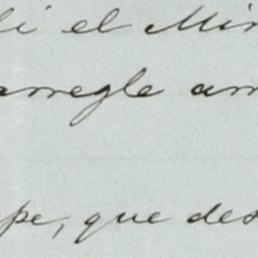 li el Min
arregle am
pe, que des